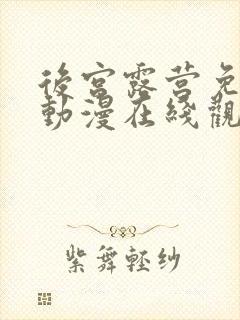 後宮露营免
動漫在綫觀
紫舞輕纱